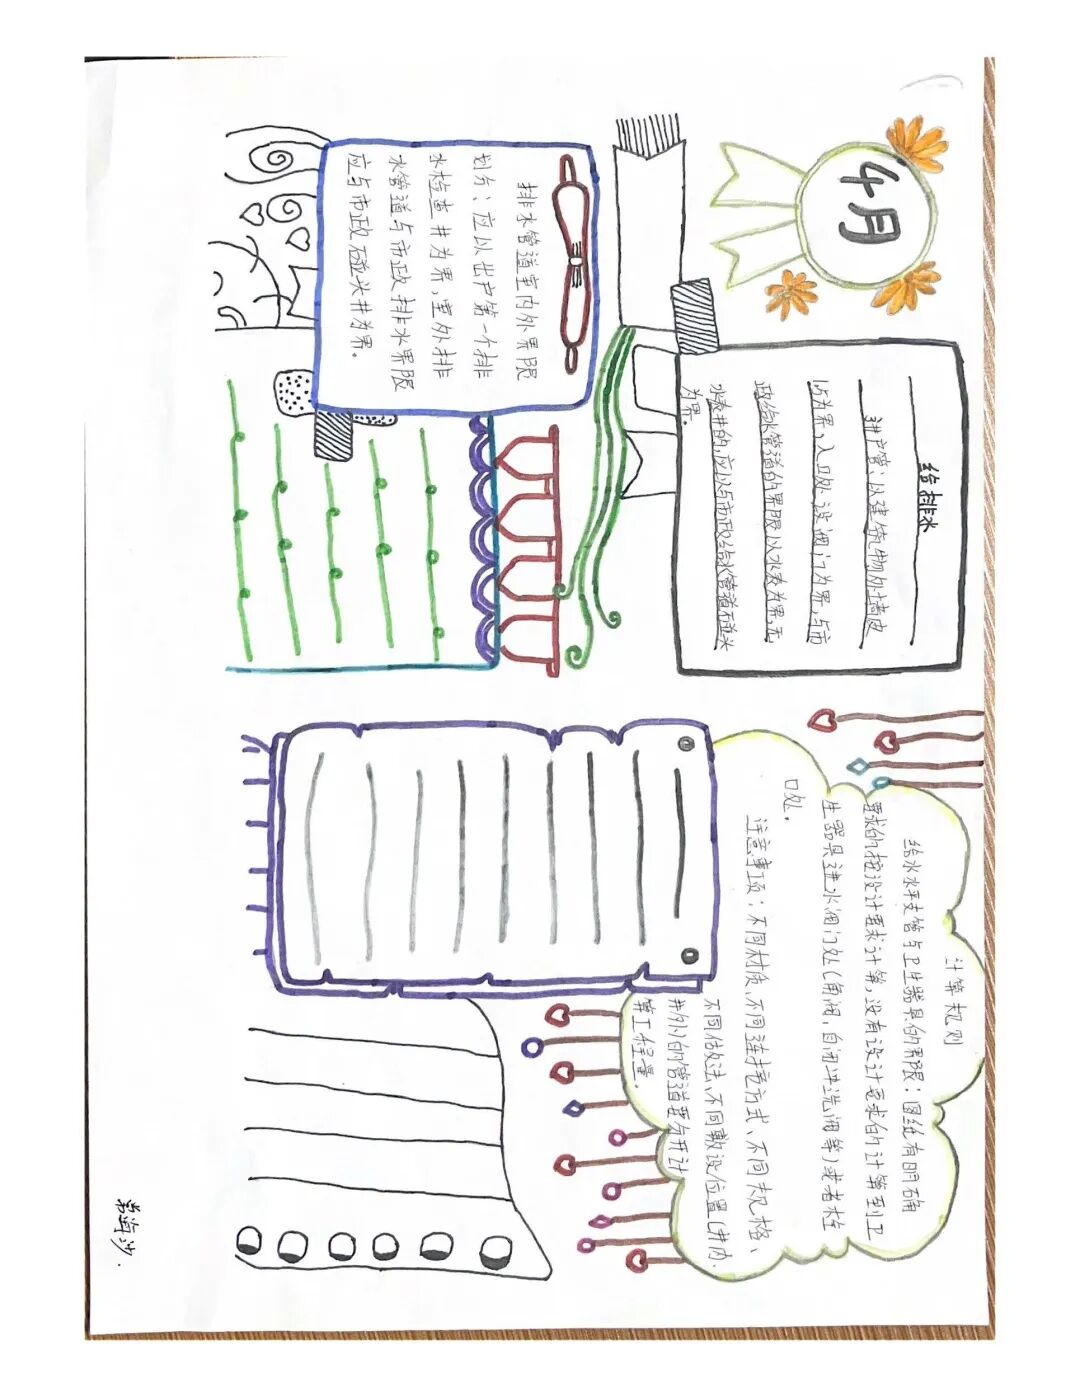 4月
给排水
进户管：以建筑物外墙皮
1.5为界，入口处设阀门为界，与市
政给水管道的界限以水表为界，无
水表井的，应以与市政给水管道碰头
为界。
排水管道室内外界限
划分：应以出户第一个排
水检查井为界，室外排
水管道与市政排水界限
应与市政碰头井为界。
计算规则
给水水平支管与卫生器具的界限：图纸有明确
要求的按设计要求计算，没有设计要求的计算到卫
生器具进水阀门处（角阀，自闭冲洗阀等）或者栓
口处。
注意事项：不同材质、不同连接方式、不同规格、
不同做法、不同敷设位置（井内
井外）的管道要分开计
算工程量。